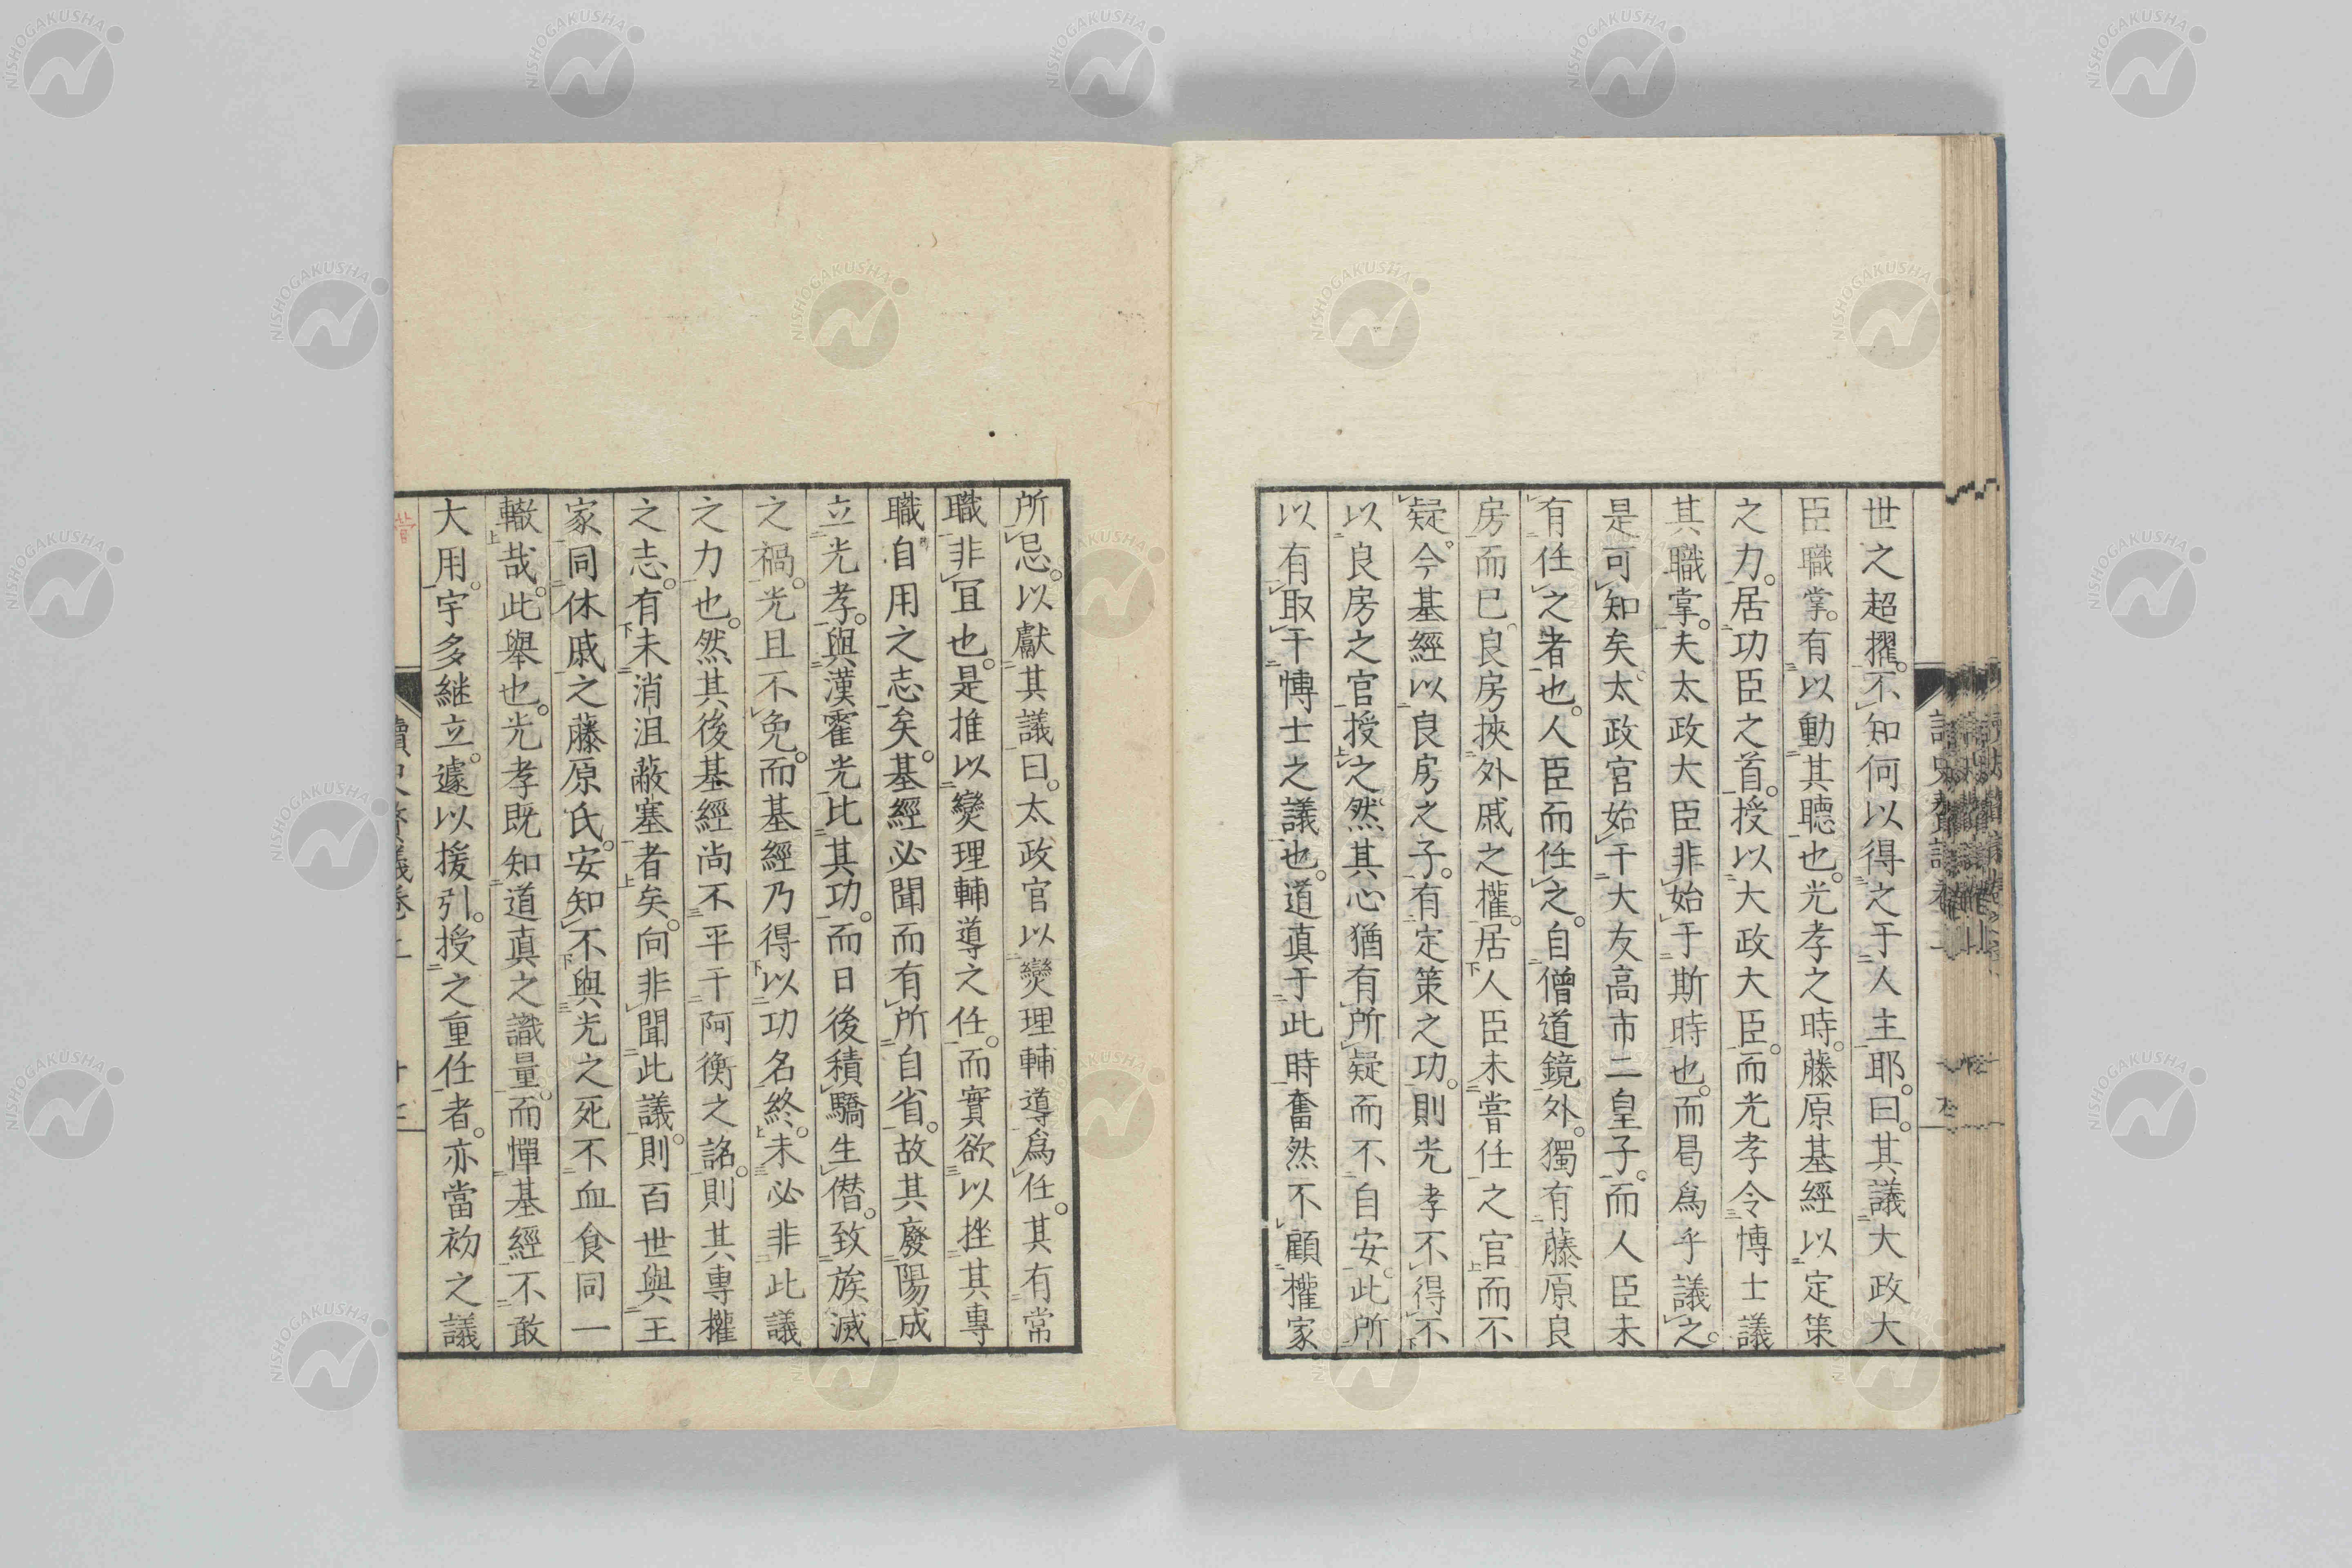 世之超擢。不知何以得之于人主耶。曰。其議大政大
臣職掌。有以動其聽也。光孝之時。藤原基經以定策
之力。居功臣之首。授以大政大臣。而光孝令博士議
其職掌。夫太政大臣非始于斯時也。而曷爲乎議之。
是可知矣。太政官始于大友高市二皇子。而人臣未
有任之者也。人臣而任之。自僧道鏡外。獨有藤原良
房而已。良房挾外戚之權。居人臣未嘗任之官而不
疑。今基經以良房之子。有定策之功。則光孝不得不
以良房之官授之。然其心猶有所疑而不自安。此所
以有取于博士之議也。道眞于此時奮然不顧權家
所忌。以獻其議曰。太政官以爕理輔導爲任。其有常
職非宜也。是推以爕理輔導之任。而實欲以挫其專
職自用之志矣。基經必聞而有所自省。故其廢陽成
立光孝。與漢霍光比其功。而日後積驕生僭。致族滅
之禍。光且不免。而基經乃得以功名終。未必非此議
之力也。然其後基經尚不平于阿衡之詺。則其專權
之志。有未消沮蔽塞者矣。向非聞此議。則百世與王
家同休戚之藤原氏。安知不與光之死不血食同一
轍哉。此舉也。光孝既知道眞之識量。而憚基經不敢
大用。宇多継立。遽以援引。授之重任者。亦當初之議
NISHOGAKUSHA